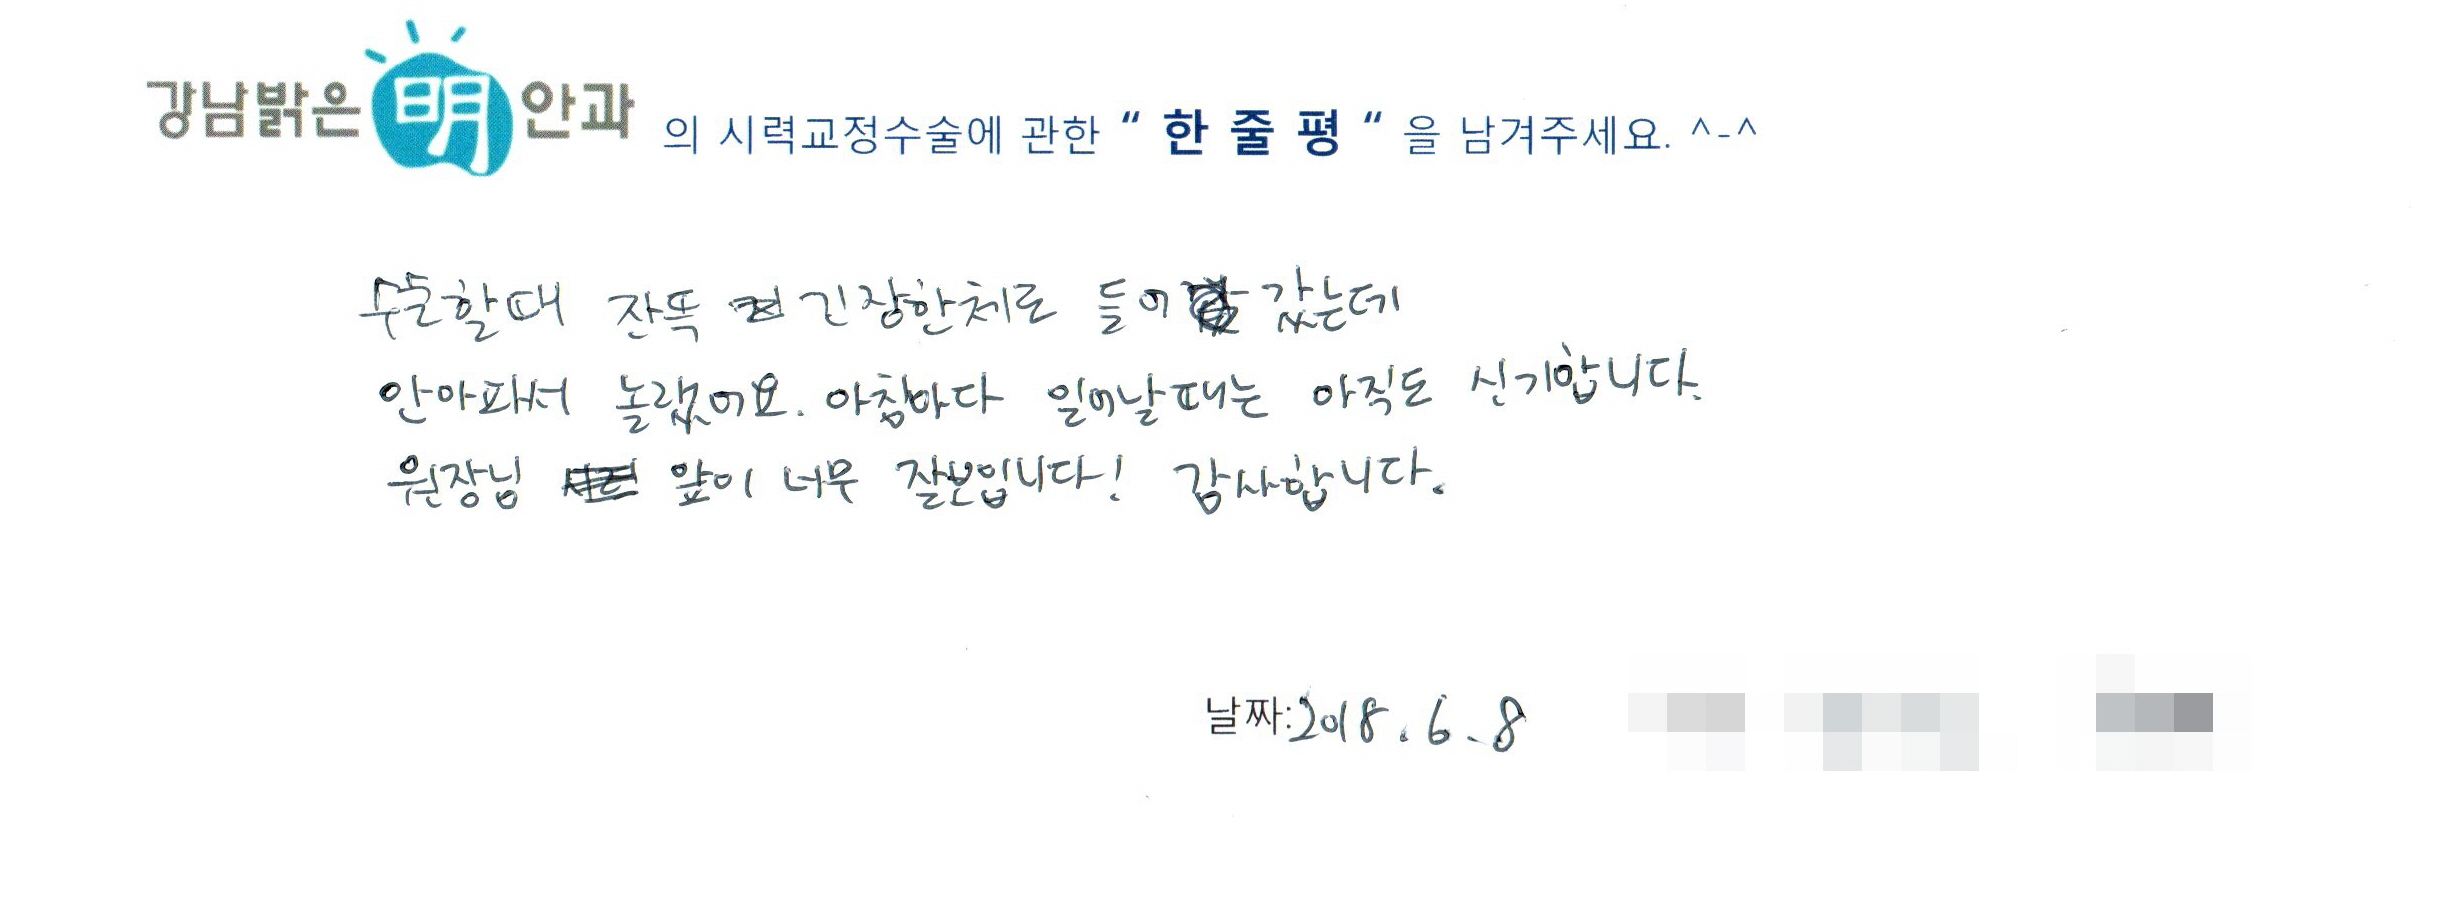 강남밝은 明 안과 의 시력교정수술에 관한 “ 한 줄 평 “ 을 남겨주세요. ^-^
수술할때 잔뜩 긴장한체로 들어갔는데
안아파서 놀랬어요. 아침마다 일어날때는 아직도 신기합니다.
원장님 앞이 너무 잘보입니다! 감사합니다.
날짜:2018.6.8